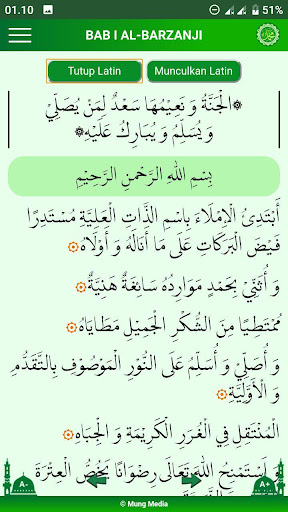 01.10 51%
BAB I AL-BARZANJI
Tutup Latin Munculkan Latin
۞الْجَنَّةُ وَ نَعِيْمُهَا سَعْدٌ لِمَنْ يُصَلِّيْ
وَ يُسَلِّمُ وَ يُبَارِكُ عَلَيْهِ۞
بِسْمِ اللهِ الرَّحْمٰنِ الرَّحِيْمِ
أَبْتَدِئُ الْإِمْلَاءَ بِاسْمِ الذَّاتِ الْعَلِيَّةِ مُسْتَدِرًّا
فَيْضَ الْبَرَكَاتِ عَلَى مَا أَنَالَهُ وَ أَوْلَاهُ۞
وَ أُثَنِّيْ بِحَمْدٍ مَوَارِدُهُ سَائِغَةٌ هَنِيَّةٌ۞
مُمْتَطِيًا مِنَ الشُّكْرِ الْجَمِيْلِ مَطَايَاهُ۞
وَ أُصَلِّيْ وَ أُسَلِّمُ عَلَى النُّوْرِ الْمَوْصُوْفِ بِالتَّقَدُّمِ
وَ الْأَوَّلِيَّةِ۞
الْمُنْتَقِلِ فِي الْغُرَرِ الْكَرِيْمَةِ وَ الْجِبَاهِ۞
وَ اَسْتَمْنِحُ اللهَ تَعَالَى رِضْوَانًا يَخُصُّ الْعِتْرَةَ
A- A+
© Mung Media